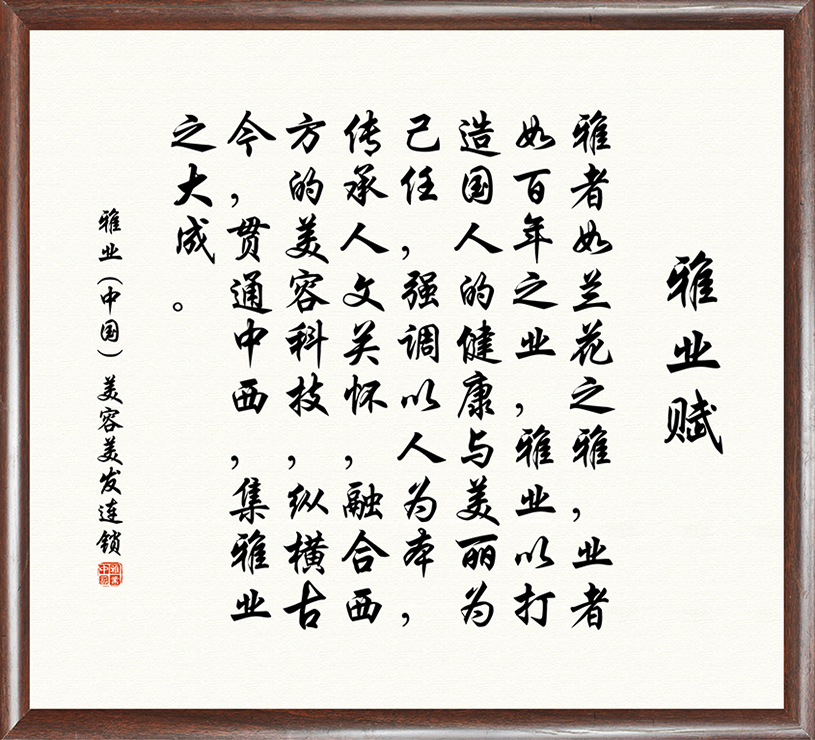 雅业赋
雅者如兰花之雅，业者
如百年之业，雅业以打
造国人的健康与美丽为
己任，强调以人为本，
传承人文关怀，融合西
方的美容科技，纵横古
今，贯通中西，集雅业
之大成。
雅业（中国）美容美发连锁